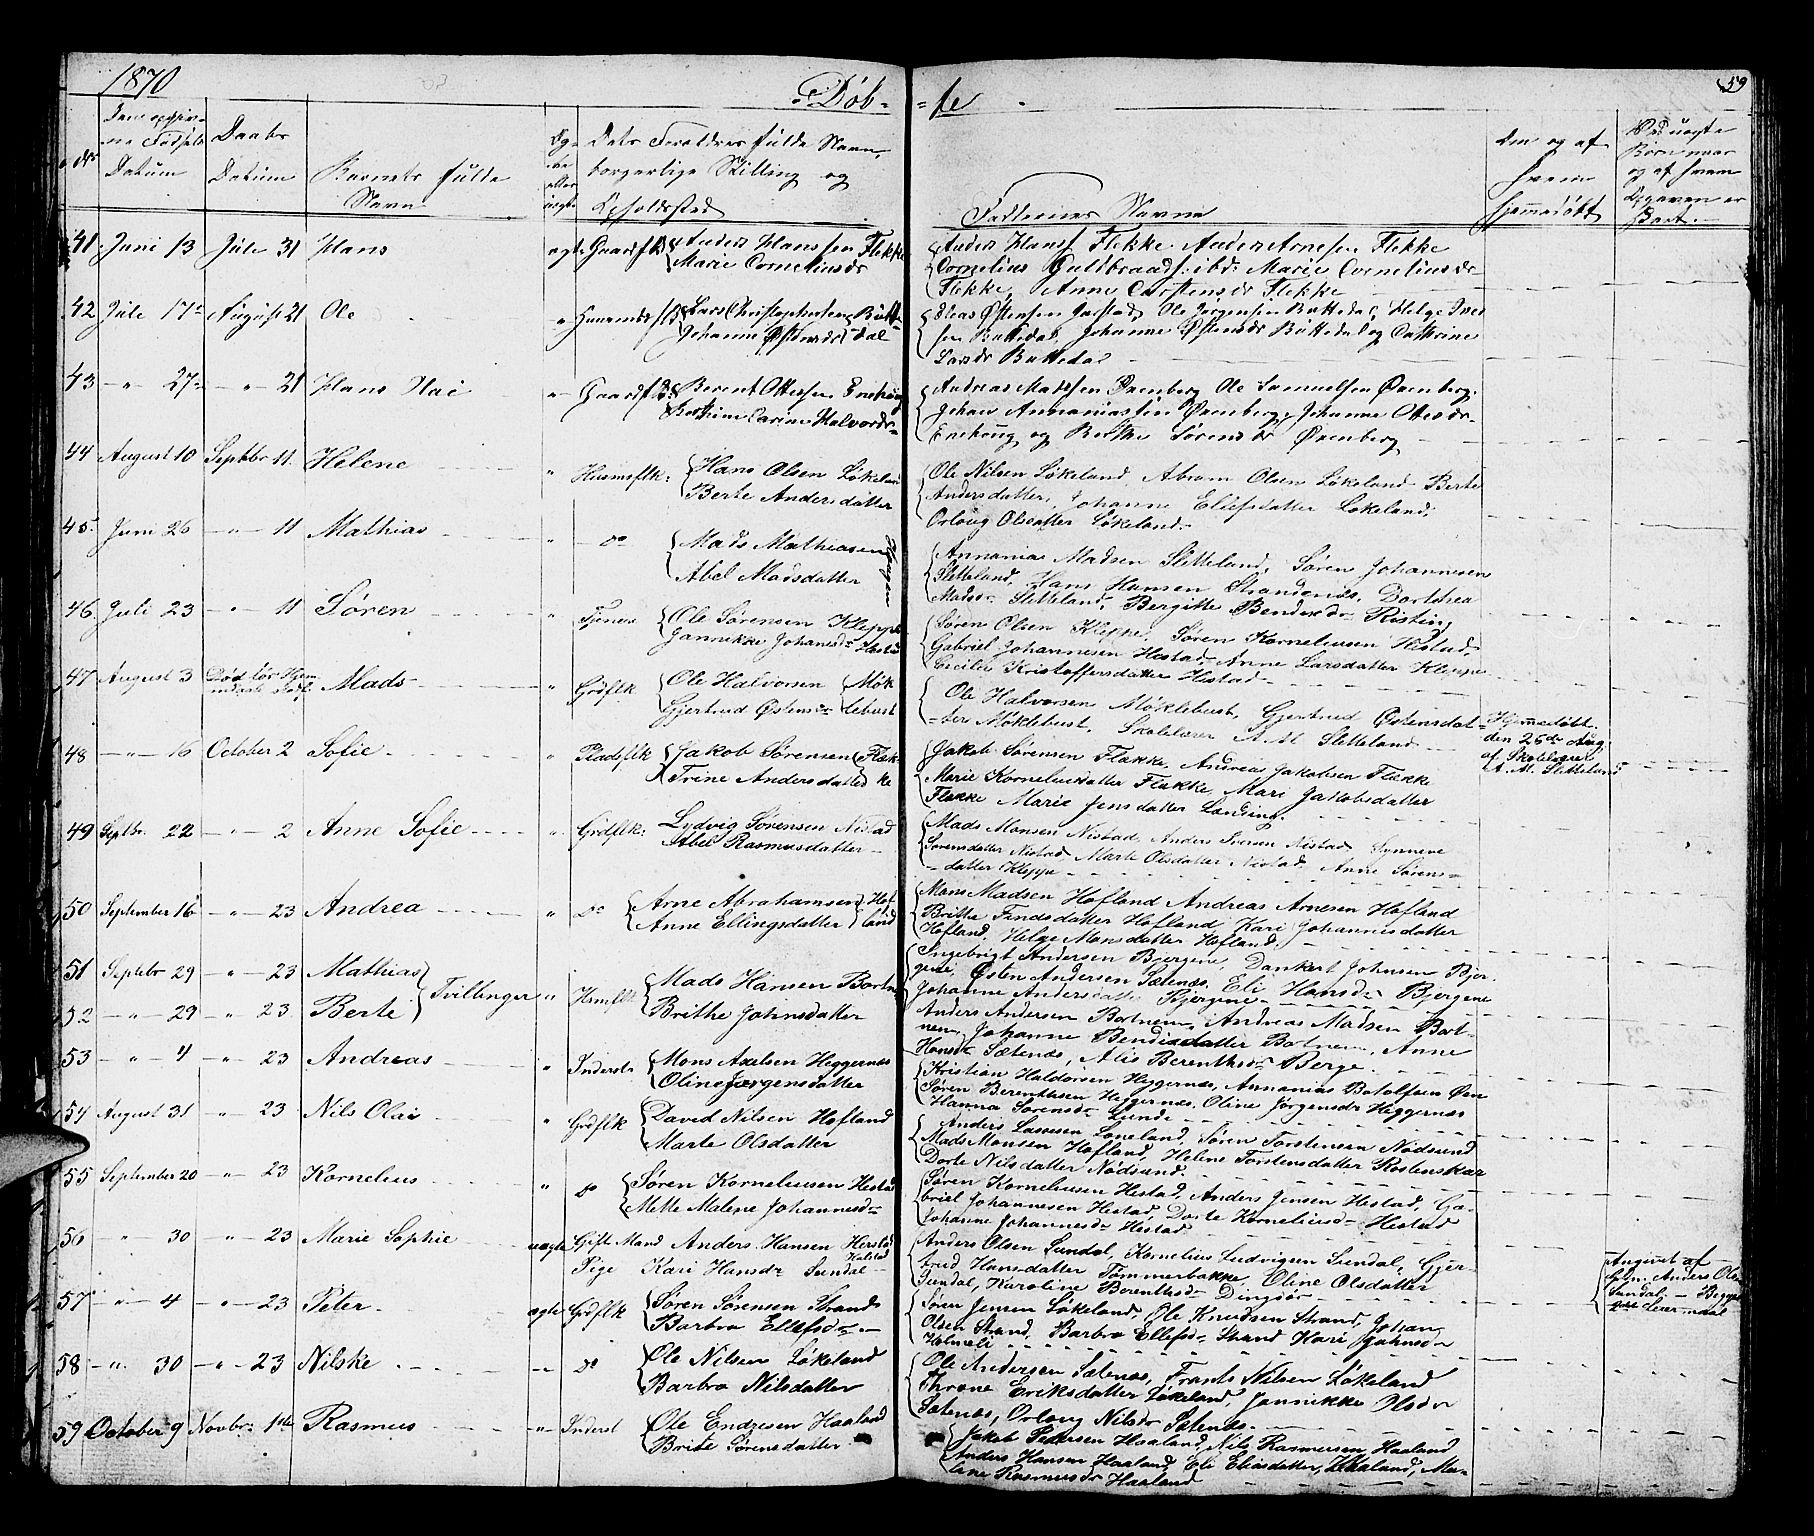 1870
Døb-
-te
59
Daabs
Datum
Datum
Barnets fulde
Navn
Dets Forældres fulde Navn,
borgerlige Stilling og
Opholdssted
Faddernes Navne
Den og af
hvem
hjemmedøbt
41 Juni 13 Juli 31 Hans ægte Gaardfk Anders Hanssen Flekke
Marie Cornelius dr
Anders Hanss Flekke Anders Arnesen Flekke
Cornelius Guldbrands: ibd: Marie Cornelius dr
Flekke, Anne Carstens dr Flekke
42 Juli 17 August 21 Ole " Lars Christophersen
Johanne Østens dr
Ole Jørgensen Buttedal, Helge Iver
sen Buttedal, Johanne Østens dr Buttedal og Cathrine
Lars dr Buttedal
43 " 27 " 21 Hans Olai " Gaardfk: Berent Ottesen Enehoug
Carine Halvords
Andreas Madssen Ørenberg Ole Samuelsen Ørenberg,
Johan Annaniassen Ørenberg, Johanne Ottes dr
Enehoug og Berthe Sørens dr Ørenberg
44 August 10 Septbr 11. Helene " Husmsflk: Hans Olsen Løkeland
Berte Andersdatter
Ole Nilsen Løkeland, Abram Olsen Løkeland Berte
Andersdatter, Johanne Ellefsdatter Løkeland,
Orloug Olsdatter Løkeland
45. Juni 26 " 11 Mathias " do Mads Mathiasen Haugen
Abel Madsdatter
Annanias Madsen Sletteland, Søren Johannesen
Sletteland, Hans Hansen Strandenæs, Dorthea
Madsdr Sletteland, Bergitte Bendix dr Risting
46 Juli 23 " 11 Søren " Tjener Ole Sørensen Kleppe
Jannikke Johannesdr Hestad
Søren Olsen Kleppe, Søren Korneliusen Hestad,
Gabriel Johannesen Hestad, Anne Larsdatter Kleppe
Cecilie Kristoffersdatter Hestad
47 August 3 Død før Hjem Mads " Grdflk Ole Halvorsen Møk
Gjertrud Østensdr lebust
Ole Halvorsen Møklebust, Gjertrud Østensdat-
ter Møklebust, Skolelærer A. M. Sletteland
Hjemmedøbt
den 25de Aug.
af Skolelærer
A. M. Sletteland
48 " 16 October 2 Sofie " Pladsflk Jakob Sørensen Flæk
Trine Andersdatter ke
Jakob Sørensen Flække, Andreas Jakobsen Flække
Marie Korneliusdatter Flække, Mari Jakobsdatter
Flække Marie Jensdatter Landing.
49 Septbr. 22 " 2 Anne Sofie " Grdflk: Lydvig Sørensen Nistad
Abel Rasmusdatter
Mads Monsen Nistad, Anders Iversen Nistad Synneve
Sørensdatter Nistad Marte Olsdatter Nistad Anne Sørens-
datter Kleppe
50 September 16 " 23 Andrea " do Arne Abrahamsen Hof
Anne Ellingsdatter land
Mons Madsen Hofland Andreas Arnesen Hofland
Brithe Findsdatter Hofland Kari Johannesdatter
Hofland, Helge Monsdatter Hofland.
51 Septebr 29 " 23 Mathias
52 " 29 " 23 Berte Tvillinger " Hsmflk Mads Hansen Botnen
Brithe Johnsdatter
Ingebrigt Andersen Bjergene, Dankert Johnsen Bjer-
gene, Østen Andersen Sætenæs, Eli Hansdr Bjergene
Johanne Andersdatter Bjergene
Anders Andersen Botnen, Andreas Madsen Bot-
nen, Johanne Bendixdatter Botnen, Anne
Hansdr Sætenæs, Alis Berenthsdr Berge.
53 " 4 " 23 Andreas " Inderst. Mons Axelsen Heggernæs
Oline Jørgensdatter
Kristian Haldorsen Heggernæs, Annanias Botolfsen Øen
Søren Berenthsen Heggernæs, Oline Jørgensdr Heggernæs
Hanna Sørensdr Lunde
54 August 31 " 23 Nils Olai " Grdflk David Nilsen Hofland
Marte Olsdatter
Anders Lassesen Loneland, Søren Torstensen Nødsund
Mads Monsen Hofland, Helene Torstensdatter Rostenskar
Dorte Nilsdatter Nødsund
55 September 20 " 23 Kornelius " do Søren Korneliusen Hestad
Mette Malene Johannesdr
Søren Korneliusen Hestad, Anders Jensen Hestad, Ga-
briel Johannesen Hestad, Dorte Korneliusdr Hestad
Johanne Johannesdr Hestad
56 " 30 " 23 Marie Sophie uægte Gift Mand Anders Hansen Herstad
Pige Kari Hansdr Sundal
Anders Olsen Sundal, Kornelius Ludvigsen Sundal, Gjer-
trud Hansdatter Tømmerbakke, Oline Olsdatter
Sundal, Karoline Berenthsdr Dingdør
Angivet af
Anders Ols
Sundal
57 " 4 " 23 Peter ægte Grdflk Søren Sørensen Strand
Barbro Ellefsdr
Søren Jensen Løkeland, Ole Knudsen Strand, Johan
Olsen Strand, Barbro Ellefsdr Strand Kari Johnsdr
Holmeli
58 " 30 " 23 Nilske " do Ole Nilsen Løkeland
Barbro Nilsdatter
Ole Andersen Sætenæs, Frants Nilsen Løkeland
Throne Eriksdatter Løkeland, Jannikke Olsdr
Sætenæs, Orloug Nilsdr Sætenæs
59 October 9 Novbr 1ste Rasmus " Inderst Ole Endresen Haaland
Brite Sørensdatter
Jakob Pedersen Haaland, Nils Rasmusen Haaland
Anders Hansen Haaland, Eli Eliasdatter, Haaland, Ma-
lene Rasmusdr Haaland